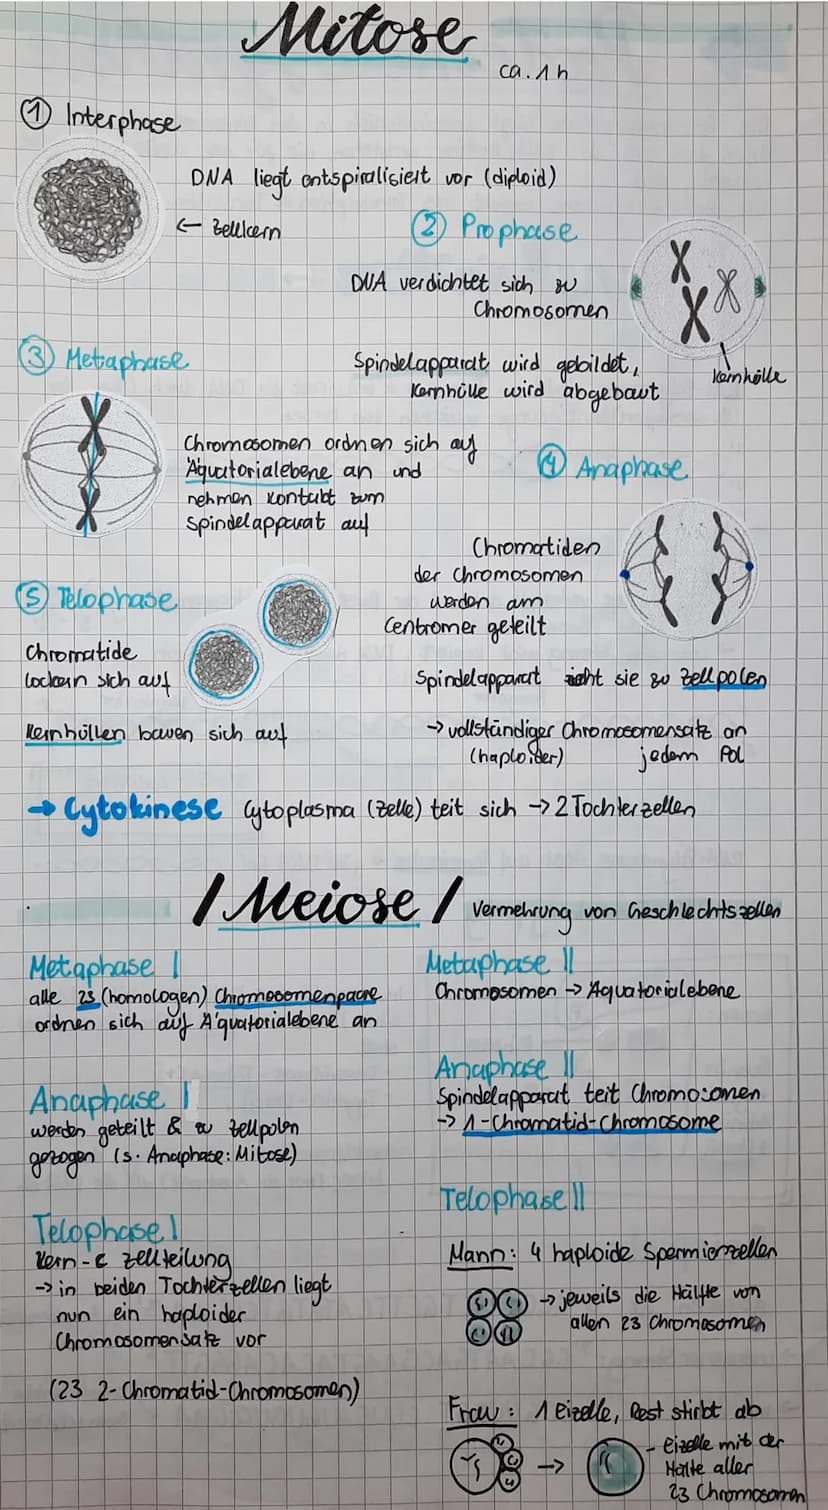 Mitose
ca. 1h
① Interphase
DNA liegt entspiralisiert vor (diploid)
← Zellkern
② Prophase
DNA verdichtet sich zu
Chromosomen
Spindelapparat wird gebildet,
Kernhülle wird abgebaut
Kernhülle
③ Metaphase
Chromosomen ordnen sich auf
Äquatorialebene an und
nehmen Kontakt zum
Spindelapparat auf
④ Anaphase
Chromatiden
der Chromosomen
werden am
Centromer geteilt
Spindelapparat zieht sie zu Zellpolen
→ vollständiger Chromosomensatz an
(haploider) jedem Pol
⑤ Telophase
Chromatide
lockern sich auf
Kernhüllen bauen sich auf
→ Cytokinese Cytoplasma (Zelle) teit sich → 2 Tochterzellen
/ Meiose / Vermehrung von Geschlechtszellen
Metaphase I
alle 23 (homologen) Chromosomenpaare
ordnen sich auf Äquatorialebene an
Anaphase I
werden geteilt & zu Zellpolen
gezogen (s. Anaphase: Mitose)
Telophase I
Kern- & Zellteilung
→ in beiden Tochterzellen liegt
nun ein haploider
Chromosomensatz vor
(23 2-Chromatid-Chromosomen)
Metaphase II
Chromosomen → Äquatorialebene
Anaphase II
Spindelapparat teit Chromosomen
→ 1-Chromatid-Chromosome
Telophase II
Mann: 4 haploide Spermienzellen
→ jeweils die Hälfte von
allen 23 Chromosomen
Frau: 1 Eizelle, Rest stirbt ab
→ - Eizelle mit der
Hälfte aller
23 Chromosomen